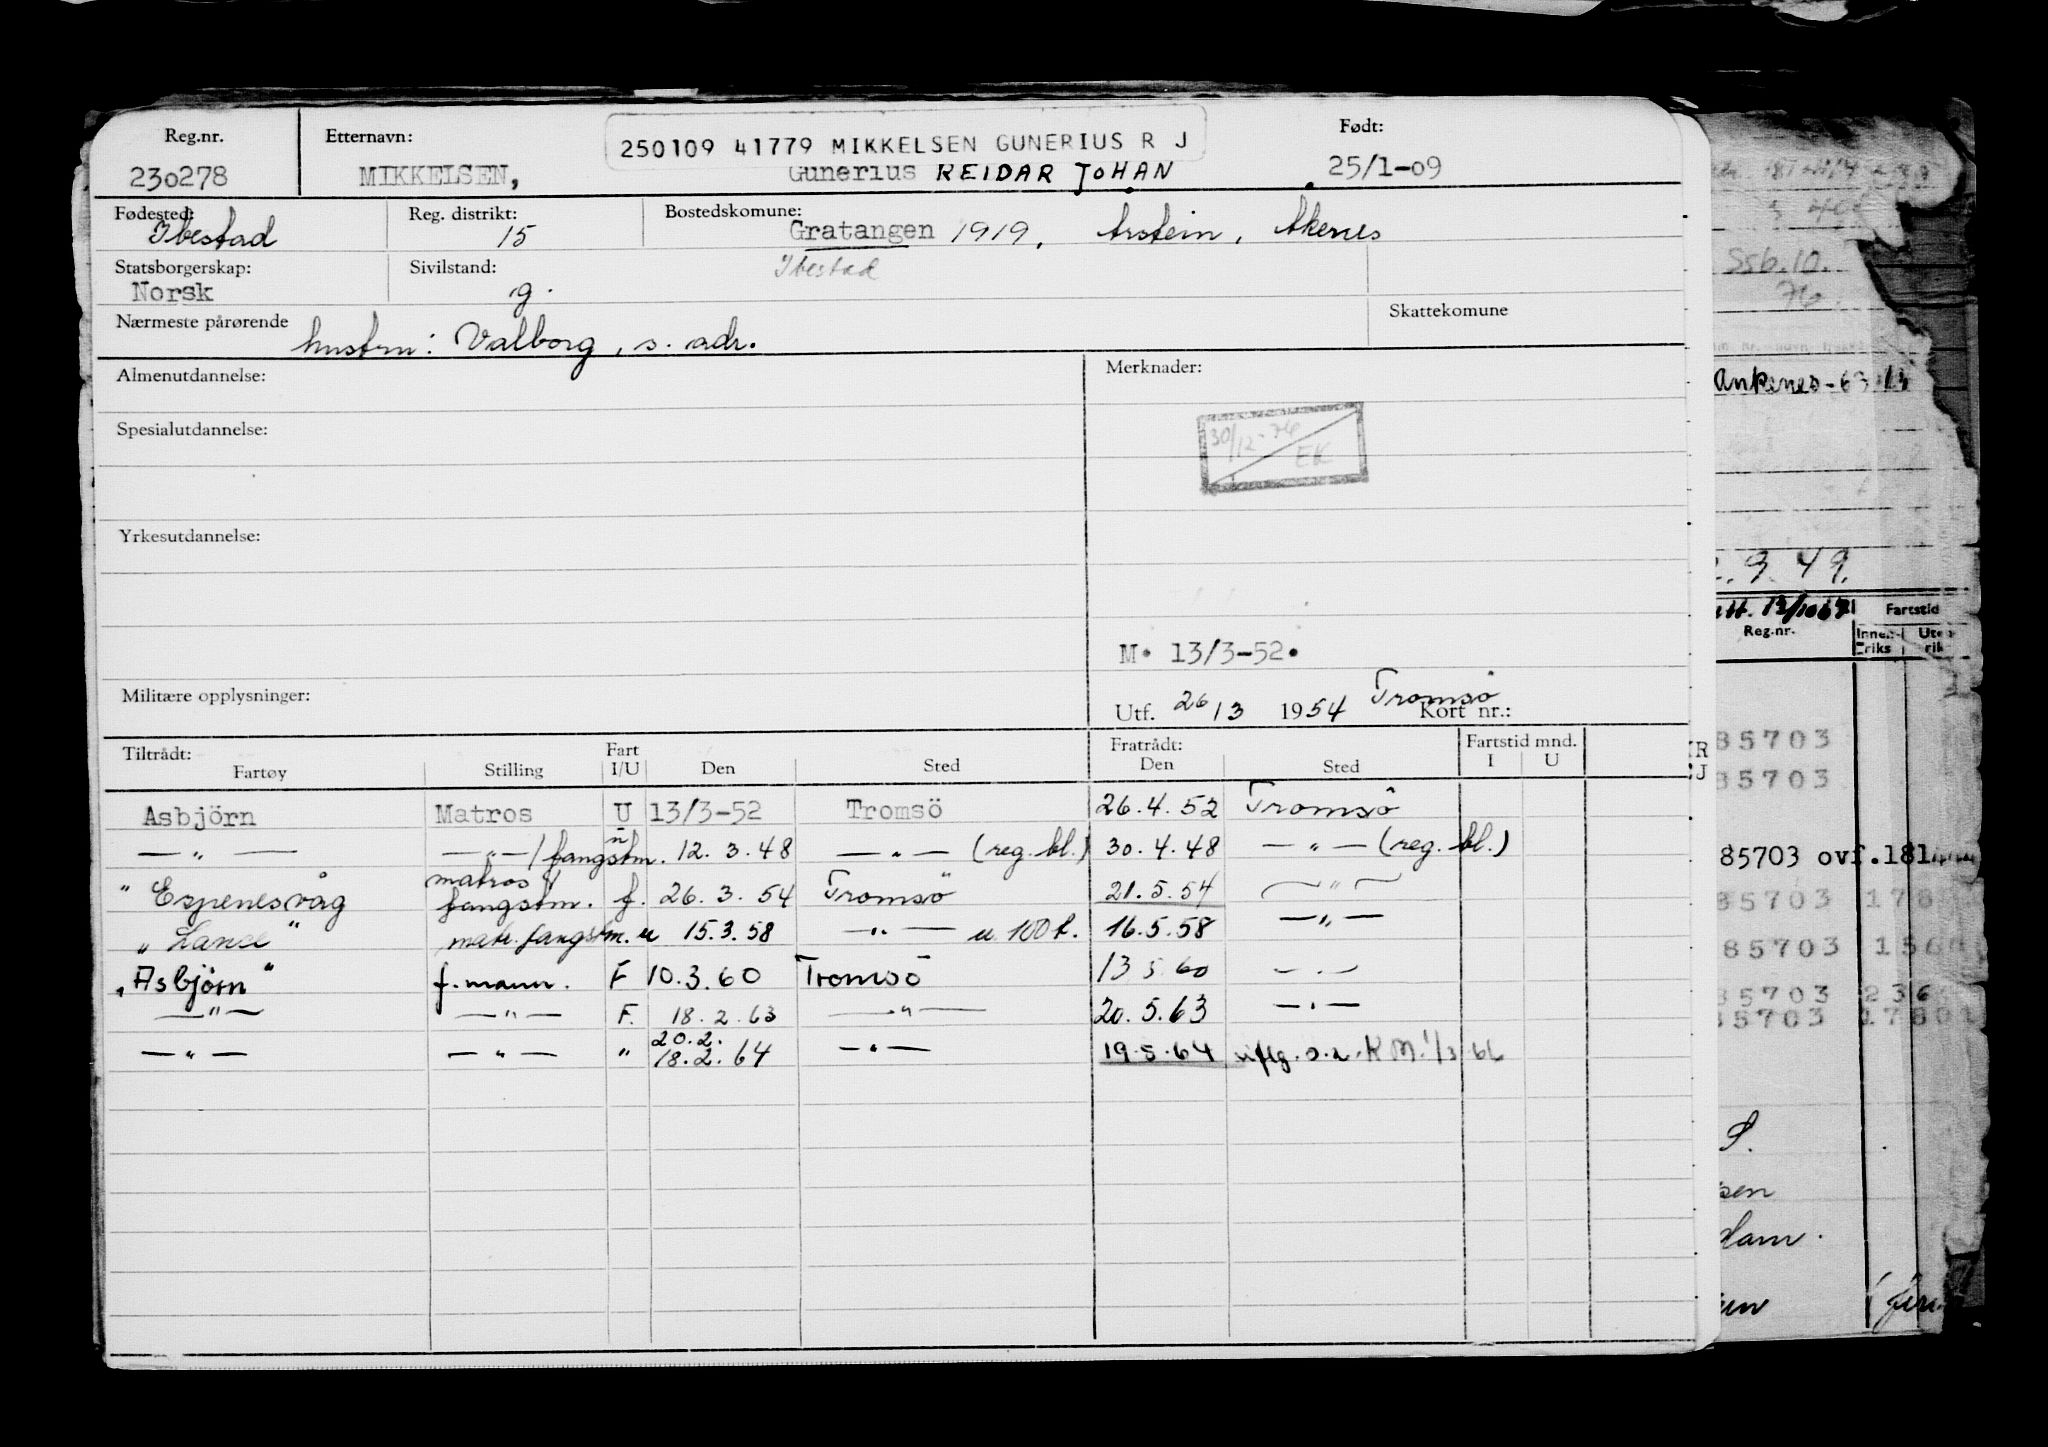 Reg.nr. Etternavn: 250109 41779 MIKKELSEN GUNERIUS R J Født:
230278 MIKKELSEN, Gunerius REIDAR JOHAN 25/1-09
Fødested: Reg. distrikt: Bostedskommune:
Ibestad 15 Gratangen 1919, Årstein, Åkenes
Statsborgerskap: Sivilstand: Ibestad
Norsk g.
Nærmeste pårørende Skattekomune
hustru: Valborg, s. adr.
Almenutdannelse: Merknader:
Spesialutdannelse:
30/12-76 EK
Yrkesutdannelse:
M. 13/3-52.
Militære opplysninger:
Utf. 26/3 1954 Tromsö Kort nr.:
Tiltrådt: Fart Fratrådt: Fartstid mnd.
Fartøy Stilling I/U Den Sted Den Sted I U
Asbjörn Matros U 13/3-52 Tromsö 26.4.52 Tromsö
— " — — " — / fangstm. u 12.3.48 — " — (reg. bl.) 30.4.48 — " — (reg. bl.)
" Espenesvåg matros / fangstm. f. 26.3.54 Tromsö 21.5.54 — " —
" Lance " matr. fangstm. u 15.3.58 — " — u. 100 t. 16.5.58 — " —
"Asbjörn" f.mann. F 10.3.60 Tromsö 13 5 60 — " —
— " — — " — F. 18.2.63 — " — 20.5.63 — " —
— " — — " — " 20.2. 18.2.64 — " — 19.5.64 KM. 1/3 66
S56.10.
76.
Ankenes-63
9.49.
13/10 67
Fartstid
Reg.nr. Innen-
riks
85703
85703
85703 ovf.181
85703 178
85703 156
85703 236
85703 1780
S.
sen
dam.